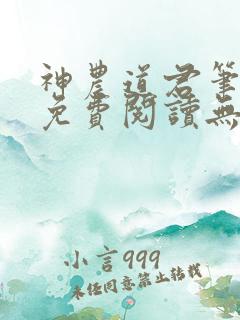 神農道君筆
免費閱讀無
小言999
未任同意禁止转载